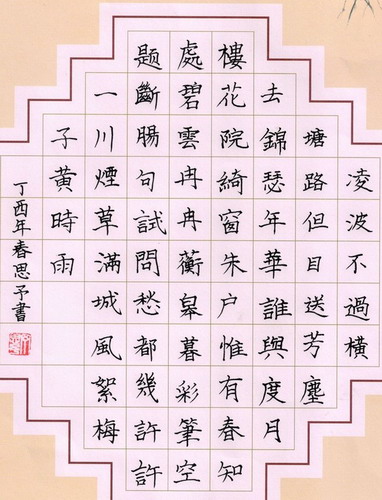 凌波不過橫
塘路但目送芳塵
去錦瑟年華誰與度月
樓花院綺窗朱户惟有春知
處碧雲冉冉蘅皋暮彩筆空
题斷腸句試問愁都幾許許
一川煙草滿城風絮梅
子黄時雨
丁酉年春思予書